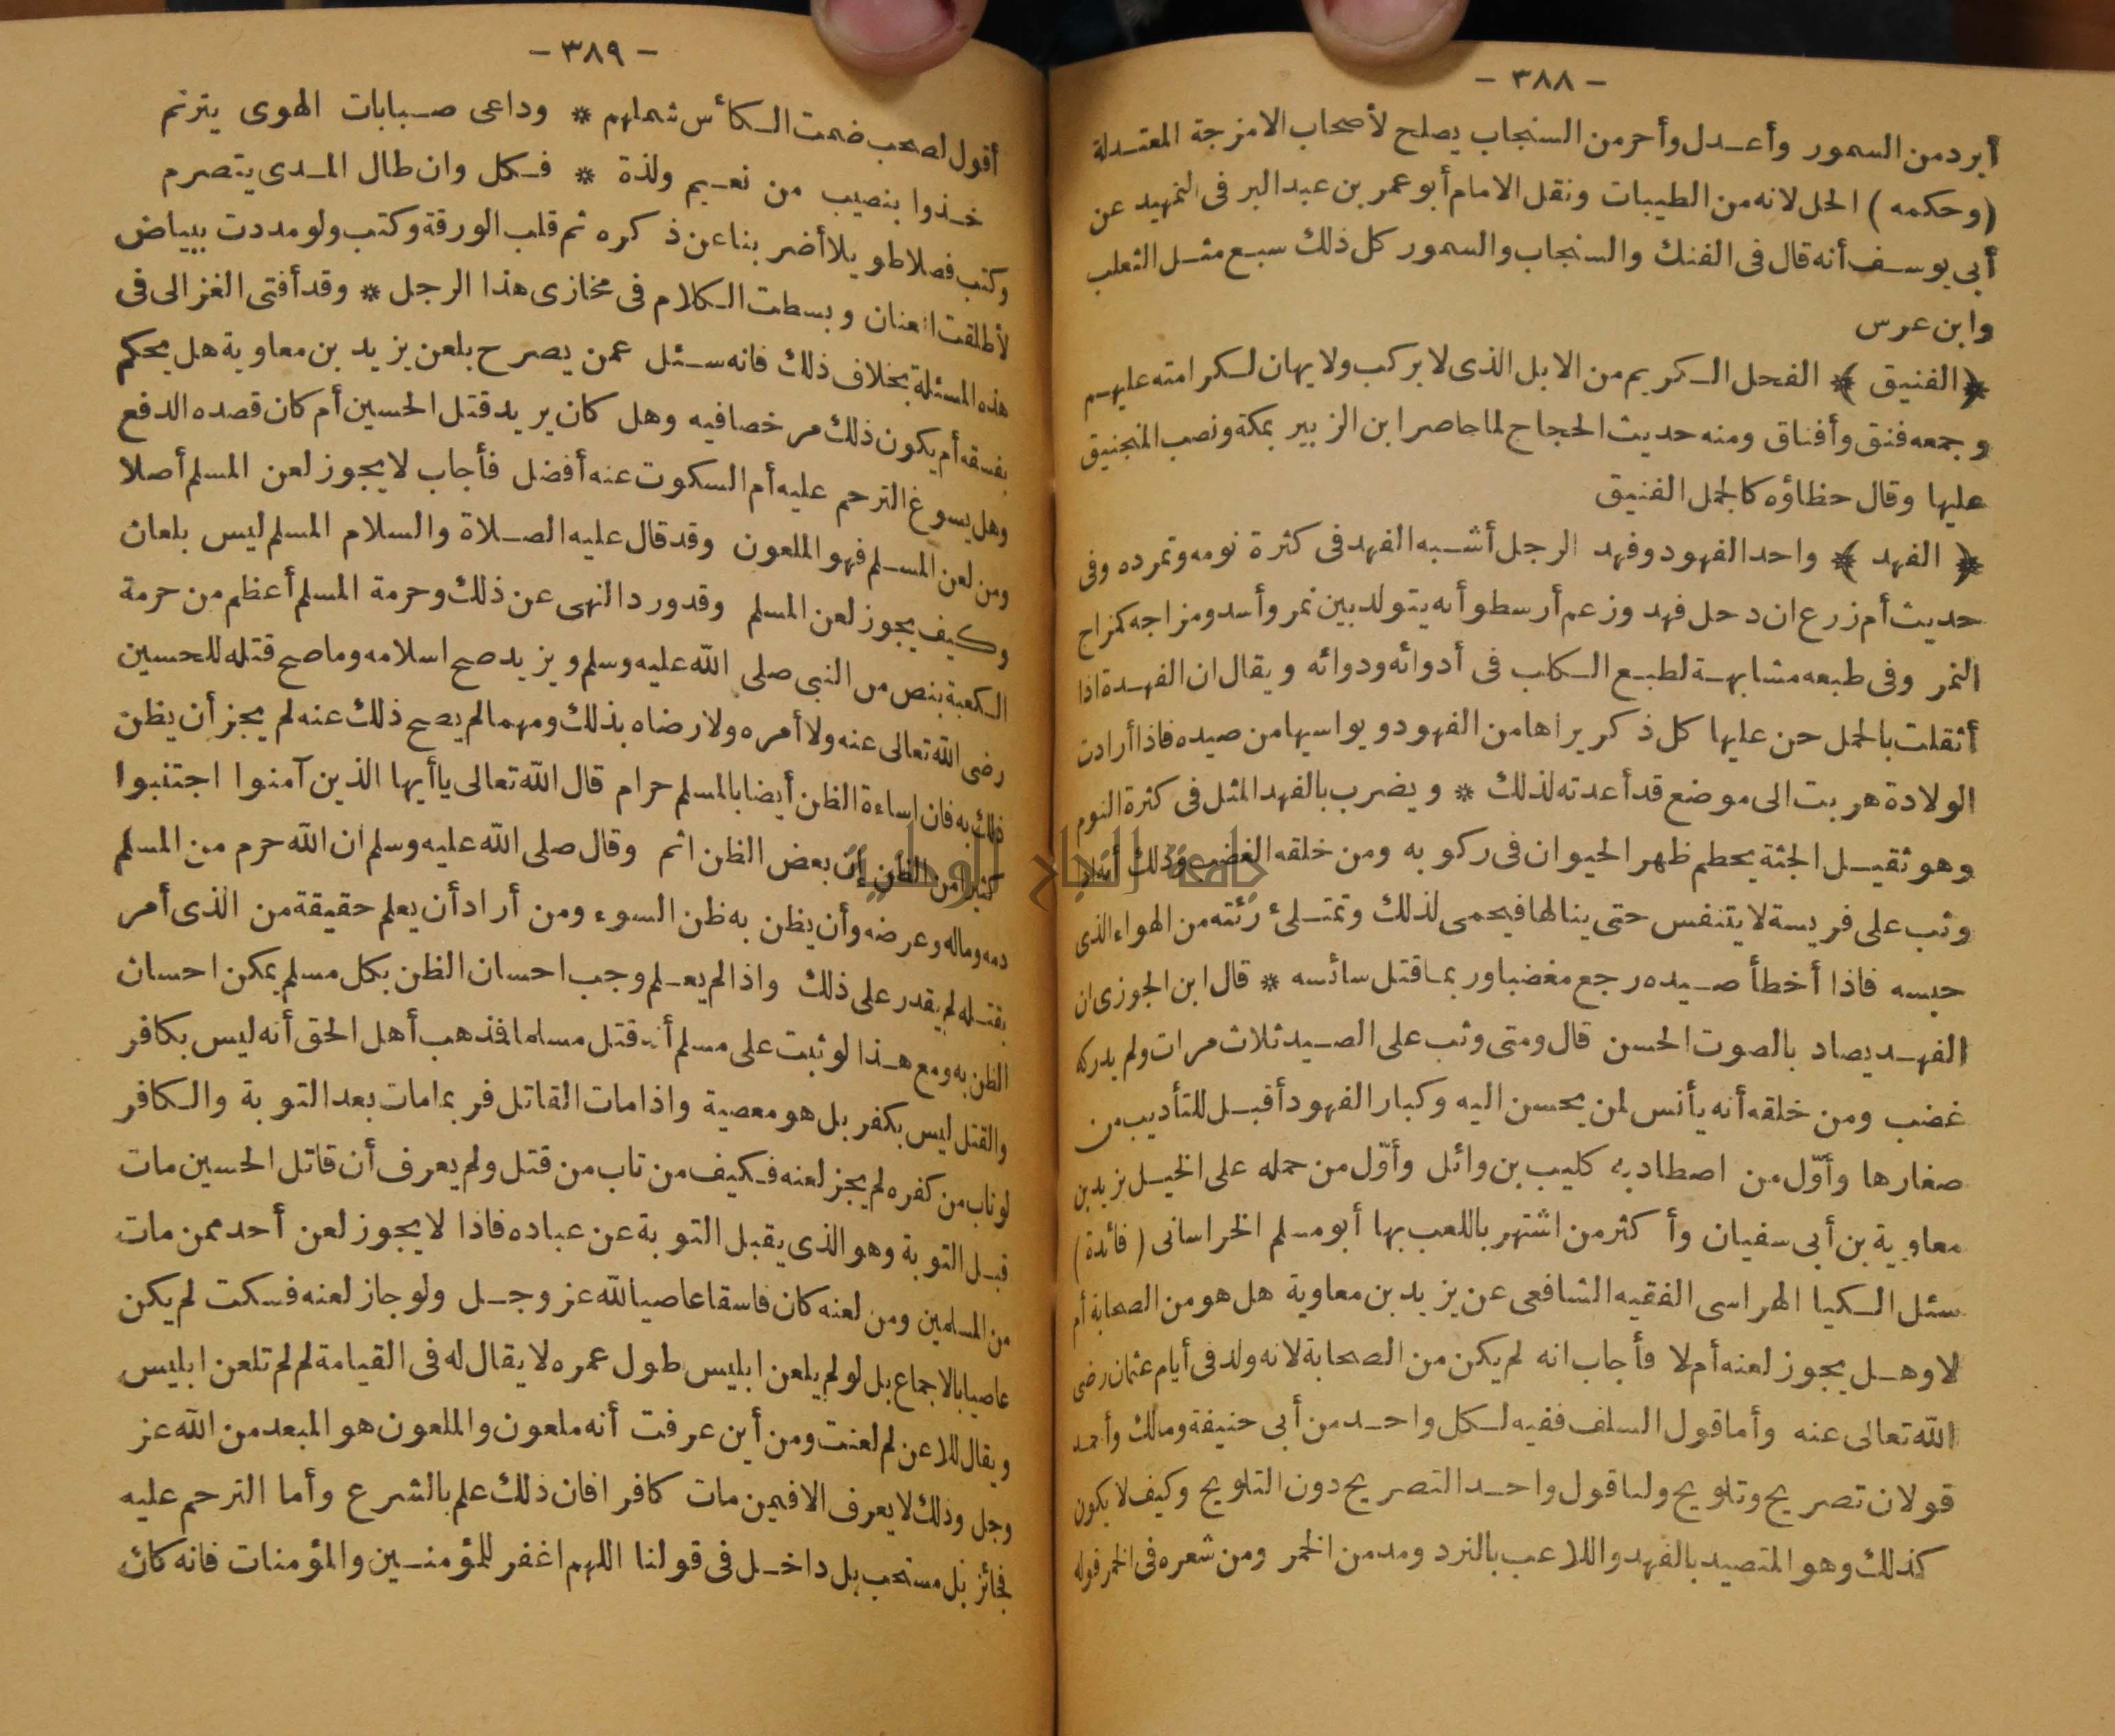 - ٣٨٨ -
أبرد من السمور وأعدل وأحر من السنجاب يصلح لأصحاب الامزجة المعتدلة
(وحكمه) الحل لانه من الطيبات ونقل الامام أبو عمر بن عبد البر فى التمهيد عن
أبى يوسف أنه قال فى الفنك والسنجاب والسمور كل ذلك سبع مثل الثعلب
وابن عرس
﴿الفنيق﴾ الفحل الكريم من الابل الذى لا يركب ولا يهان لكرامته عليهم
وجمعه فنق وأفناق ومنه حديث الحجاج لما حاصر ابن الزبير بمكة ونصب المنجنيق
عليها وقال حظاؤه كالجمل الفنيق
﴿الفهد﴾ واحد الفهود وفهد الرجل أشبه الفهد فى كثرة نومه وتمرده وفى
حديث أم زرع ان دخل فهد وزعم أرسطو أنه يتولد بين نمر وأسد ومزاجه كمزاج
النمر وفى طبعه مشابهة لطبع الكلب فى أدوائه ودوائه ويقال ان الفهدة اذا
أثقلت بالحمل حن عليها كل ذكر يراها من الفهود ويواسيها من صيده فاذا أرادت
الولادة هربت الى موضع قد أعدته لذلك * ويضرب بالفهد المثل فى كثرة النوم
وهو ثقيل الجثة يحطم ظهر الحيوان فى ركوبه ومن خلقه الغضب وذلك أنه اذا
وثب على فريسة لا يتنفس حتى ينالها فيحمى لذلك وتمتلئ رئته من الهواء الذى
حبسه فاذا أخطأ صيده رجع مغضبا وربما قتل سائسه * قال ابن الجوزى ان
الفهد يصاد بالصوت الحسن قال ومتى وثب على الصيد ثلاث مرات ولم يدركه
غضب ومن خلقه أنه يأنس لمن يحسن اليه وكبار الفهود أقبل للتأديب من
صغارها وأوّل من اصطاد به كليب بن وائل وأوّل من حمله على الخيل يزيد بن
معاوية بن أبى سفيان وأكثر من اشتهر باللعب بها أبو مسلم الخراسانى (فائدة)
سئل الكيا الهراسى الفقيه الشافعى عن يزيد بن معاوية هل هو من الصحابة أم
لا وهل يجوز لعنه أم لا فأجاب انه لم يكن من الصحابة لانه ولد فى أيام عثمان رضى
الله تعالى عنه وأما قول السلف ففيه لكل واحد من أبى حنيفة ومالك وأحمد
قولان تصريح وتلويح ولنا قول واحد التصريح دون التلويح وكيف لا يكون
كذلك وهو المتصيد بالفهد واللاعب بالنرد ومدمن الخمر ومن شعره فى الخمر قوله
- ٣٨٩ -
أقول لصحب ضمت الكأس شملهم * وداعى صبابات الهوى يترنم
خذوا بنصيب من نعيم ولذة * فكل وان طال المدى يتصرم
وكتب فصلا طويلا أضربنا عن ذكره ثم قلب الورقة وكتب ولو مددت ببياض
لأطلقت العنان وبسطت الكلام فى مخازى هذا الرجل * وقد أفتى الغزالى فى
هذه المسئلة بخلاف ذلك فانه سئل عمن يصرح بلعن يزيد بن معاوية هل يحكم
بفسقه أم يكون ذلك مرخصا فيه وهل كان يريد قتل الحسين أم كان قصده الدفع
وهل يسوغ الترحم عليه أم السكوت عنه أفضل فأجاب لا يجوز لعن المسلم أصلا
ومن لعن المسلم فهو الملعون وقد قال عليه الصلاة والسلام المسلم ليس بلعان
وكيف يجوز لعن المسلم وقد ورد النهى عن ذلك وحرمة المسلم أعظم من حرمة
الكعبة بنص من النبى صلى الله عليه وسلم ويزيد صح اسلامه وما صح قتله للحسين
رضى الله تعالى عنه ولا أمره ولا رضاه بذلك ومهما لم يصح ذلك عنه لم يجز أن يظن
ذلك به فان اساءة الظن أيضا بالمسلم حرام قال الله تعالى ياأيها الذين آمنوا اجتنبوا
كثيرا من الظن إن بعض الظن اثم وقال صلى الله عليه وسلم ان الله حرم من المسلم
دمه وماله وعرضه وأن يظن به ظن السوء ومن أراد أن يعلم حقيقة من الذى أمر
بقتله لم يقدر على ذلك واذا لم يعلم وجب احسان الظن بكل مسلم يمكن احسان
الظن به ومع هذا لو ثبت على مسلم أنه قتل مسلما فذهب أهل الحق أنه ليس بكافر
والقتل ليس بكفر بل هو معصية واذا مات القاتل فربما مات بعد التوبة والكافر
لو تاب من كفره لم يجز لعنه فكيف من تاب من قتل ولم يعرف أن قاتل الحسين مات
قبل التوبة وهو الذى يقبل التوبة عن عباده فاذا لا يجوز لعن أحد ممن مات
من المسلمين ومن لعنه كان فاسقا عاصيا لله عز وجل ولو جاز لعنه فسكت لم يكن
عاصيا بالاجماع بل لو لم يلعن ابليس طول عمره لا يقال له فى القيامة لم لم تلعن ابليس
ويقال للاعن لم لعنت ومن أين عرفت أنه ملعون والملعون هو المبعد من الله عز
وجل وذلك لا يعرف الا فيمن مات كافرا فان ذلك علم بالشرع وأما الترحم عليه
فجائز بل مستحب بل داخل فى قولنا اللهم اغفر للمؤمنين والمؤمنات فانه كان
جامعة النجاح الوطنية